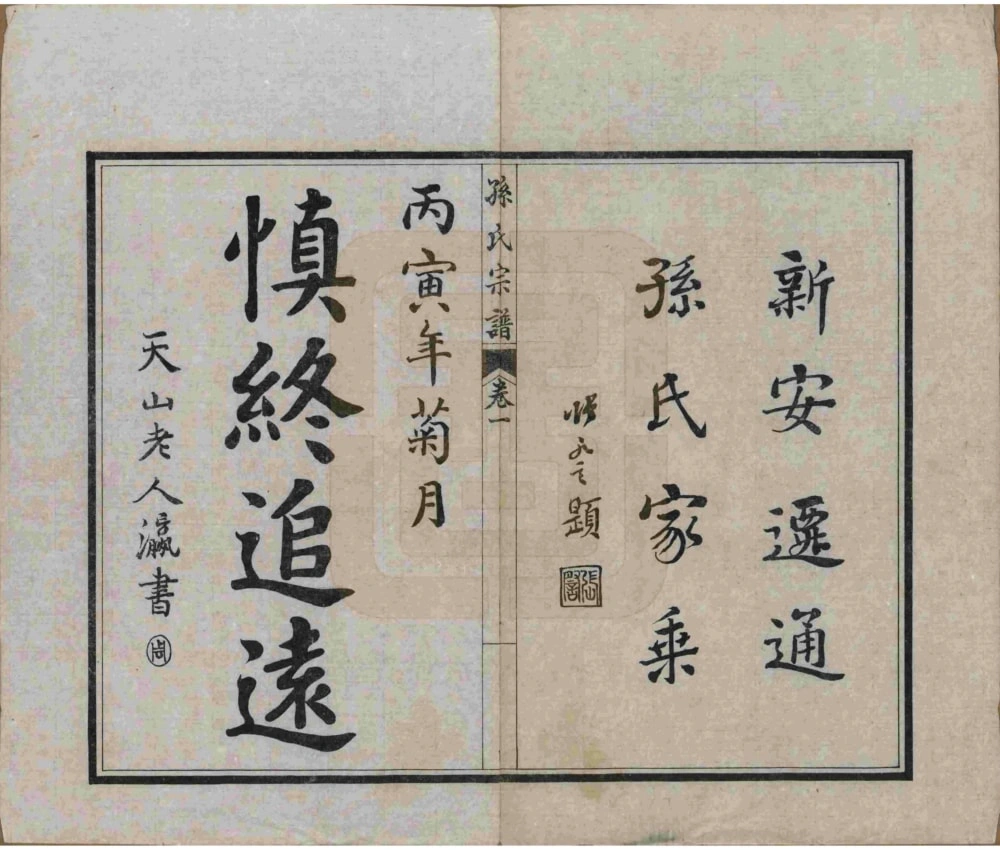 新安遷通
孫氏家乘
題
孫氏宗譜 卷一
丙寅年菊月
慎終追遠
天山老人瀛書